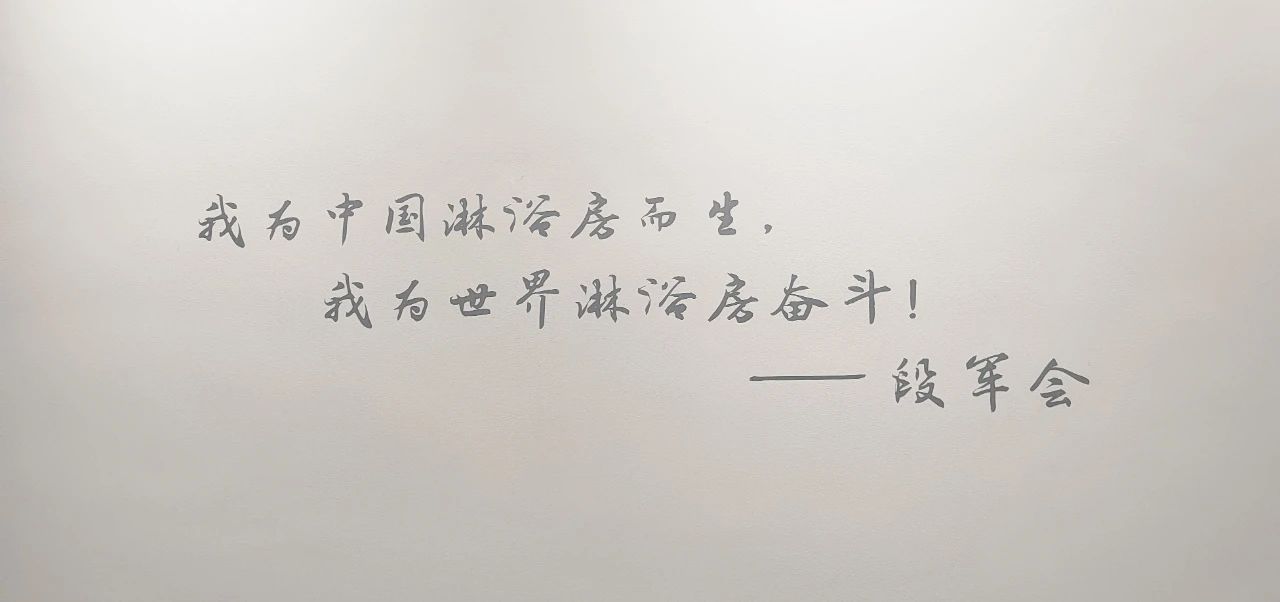 我为中国淋浴房而生，
我为世界淋浴房奋斗！
——段军会